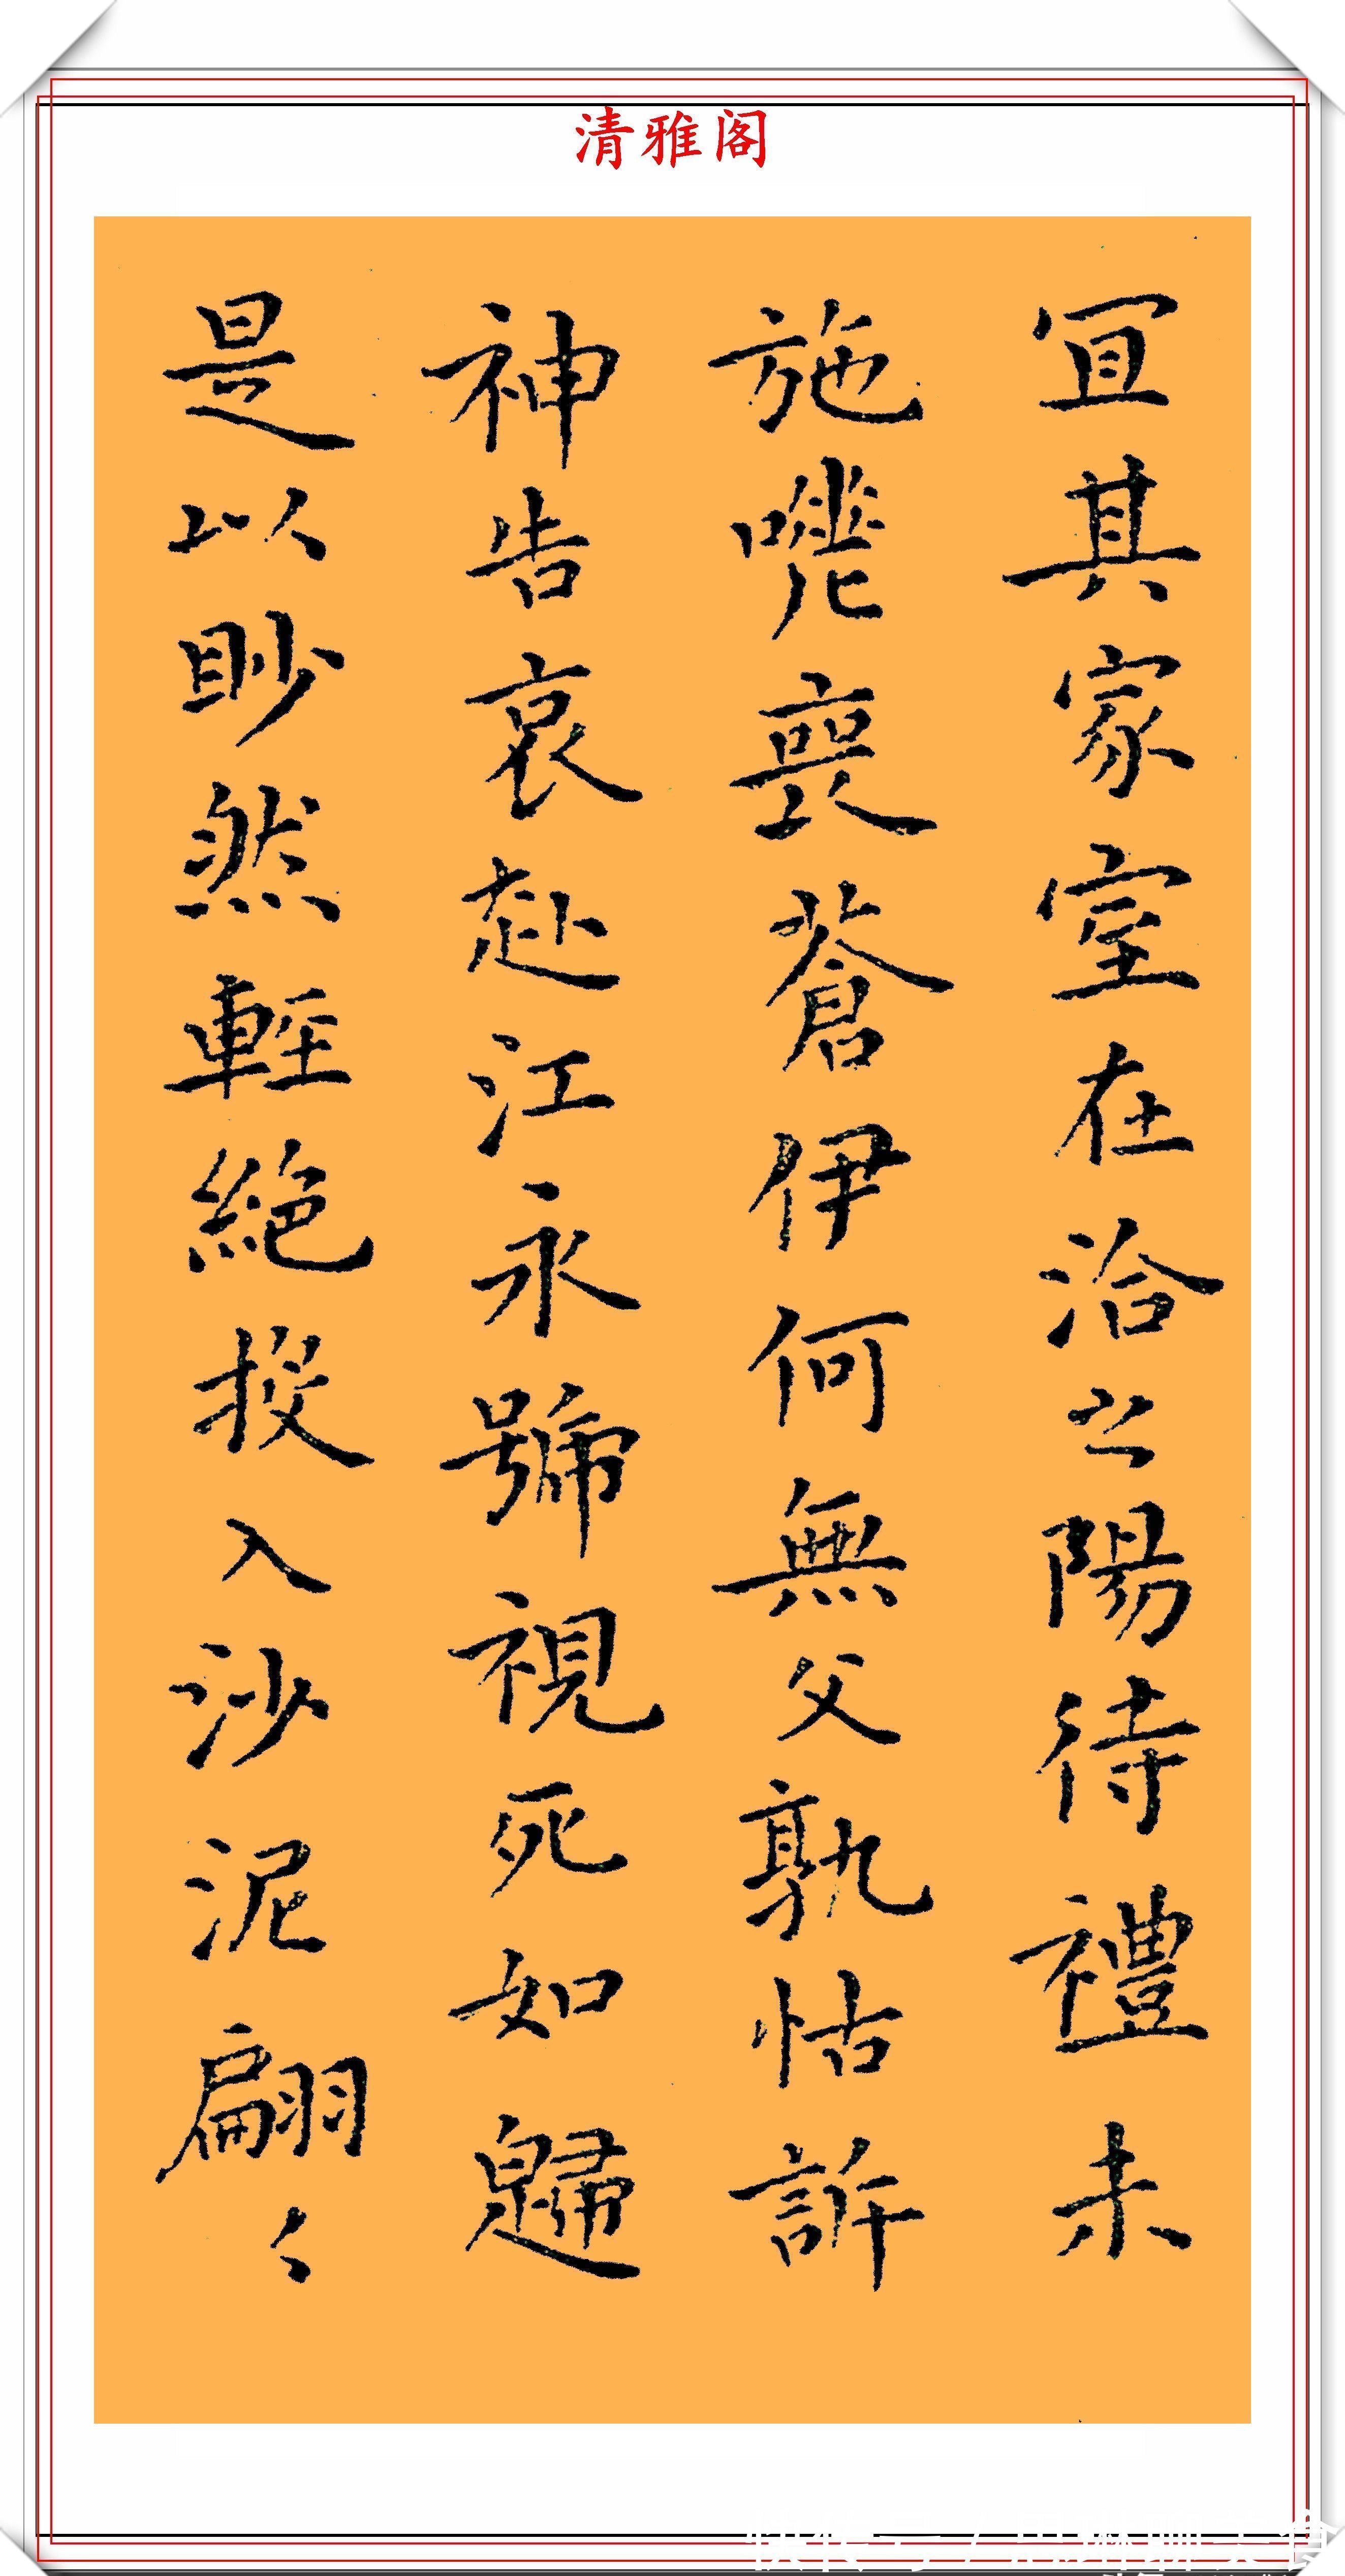 清雅阁
宜其家室在洽之陽待禮未
施嗟喪蒼伊何無父孰怙訴
神告哀赴江永號視死如歸
是以眇然輕絕投入沙泥翩〻